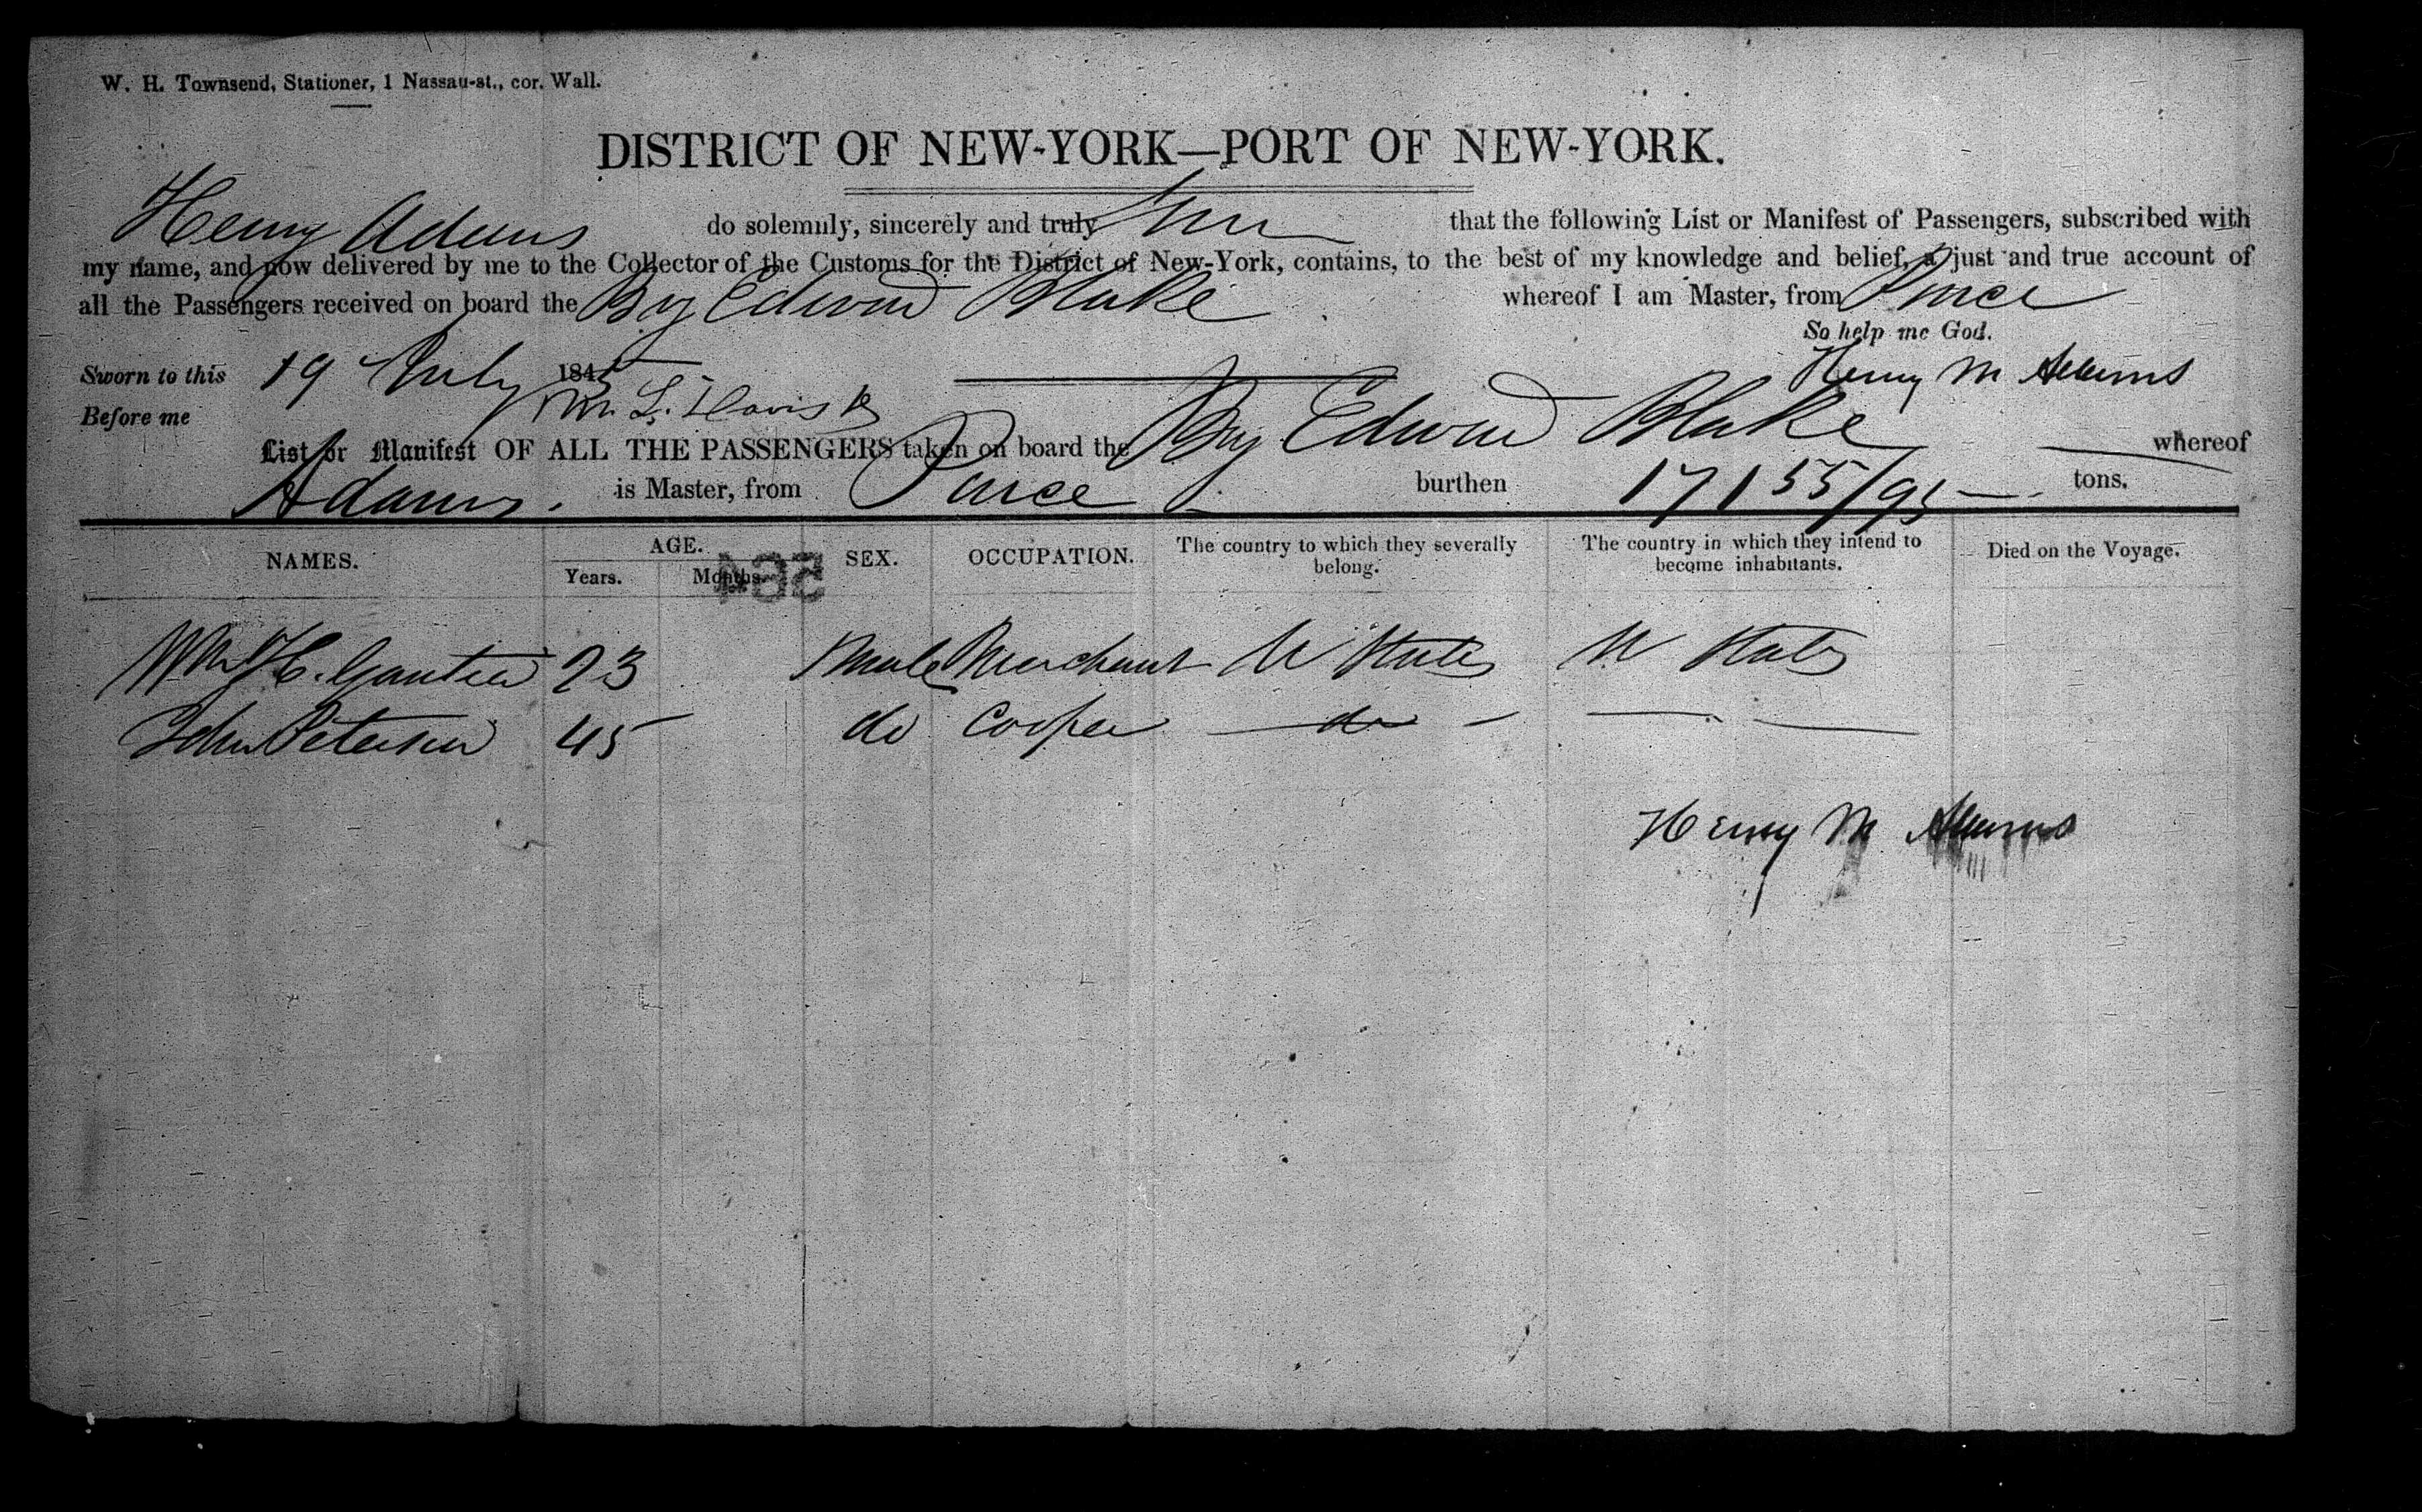 W. H. Townsend, Stationer, 1 Nassau-st., cor. Wall.
DISTRICT OF NEW-YORK—PORT OF NEW-YORK.
Henry Adams do solemnly, sincerely and truly that the following List or Manifest of Passengers, subscribed with
my name, and now delivered by me to the Collector of the Customs for the District of New-York, contains, to the best of my knowledge and belief, a just and true account of
all the Passengers received on board the Brig Edwin Blake whereof I am Master, from Ponce
So help me God.
Sworn to this 19 July 184 Henry M Adams
Before me M. L. Davis
List or Manifest OF ALL THE PASSENGERS taken on board the Brig Edwin Blake whereof
Adams. is Master, from Ponce burthen 171 55/95 tons.
NAMES. AGE. Years. Months. SEX. OCCUPATION. The country to which they severally belong. The country in which they intend to become inhabitants. Died on the Voyage.
564
Wm H. Gautier 23 Male Merchant U States U States
John Peterson 45 do Cooper do
Henry M Adams